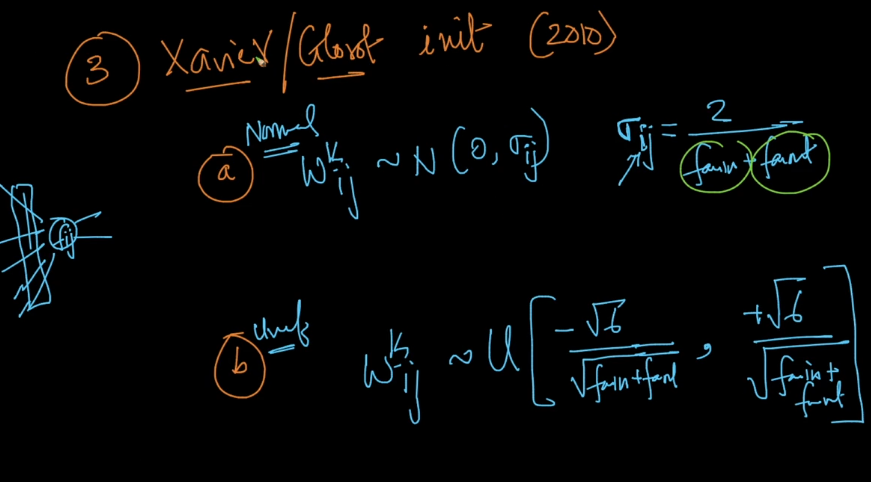 3 Xavier/Glorot init (2010)
a Normal W^k_ij ~ N(0, σ_ij) σ_ij = 2 / (fanin + fanout)
fij
b Unif W^k_ij ~ U[-√6 / √(fanin+fanout), +√6 / √(fanin+fanout)]